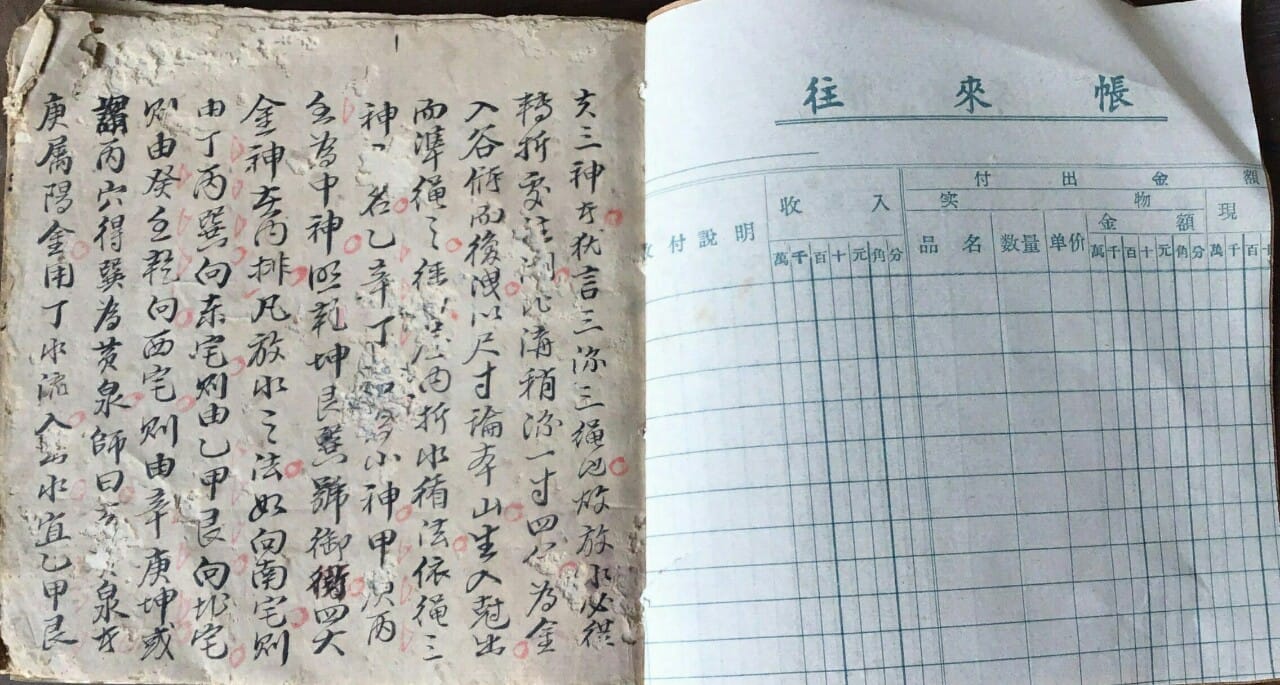 夫三神者犹言三三绳也放水必從
轉折溝稍深一寸四分為金
入谷後洩以尺寸論本山生入尅出
而準繩之内折水循法依繩三
神乙辛丁小神甲庚丙
壬為中神乾坤艮巽號御街四大
金神在丙排凡放水之法如向南宅則
由丁丙巽向東宅則由乙甲艮向北宅
则由癸壬乾向西宅则由辛庚坤或
謂丙穴得巽為黄泉師曰泉者
庚属陽金用丁水流入水宜乙甲艮
往來帳
付出金額
收入 实物 現
付說明 品名 数量 单价 金額
萬千百十元角分 萬千百十元角分 萬千百十